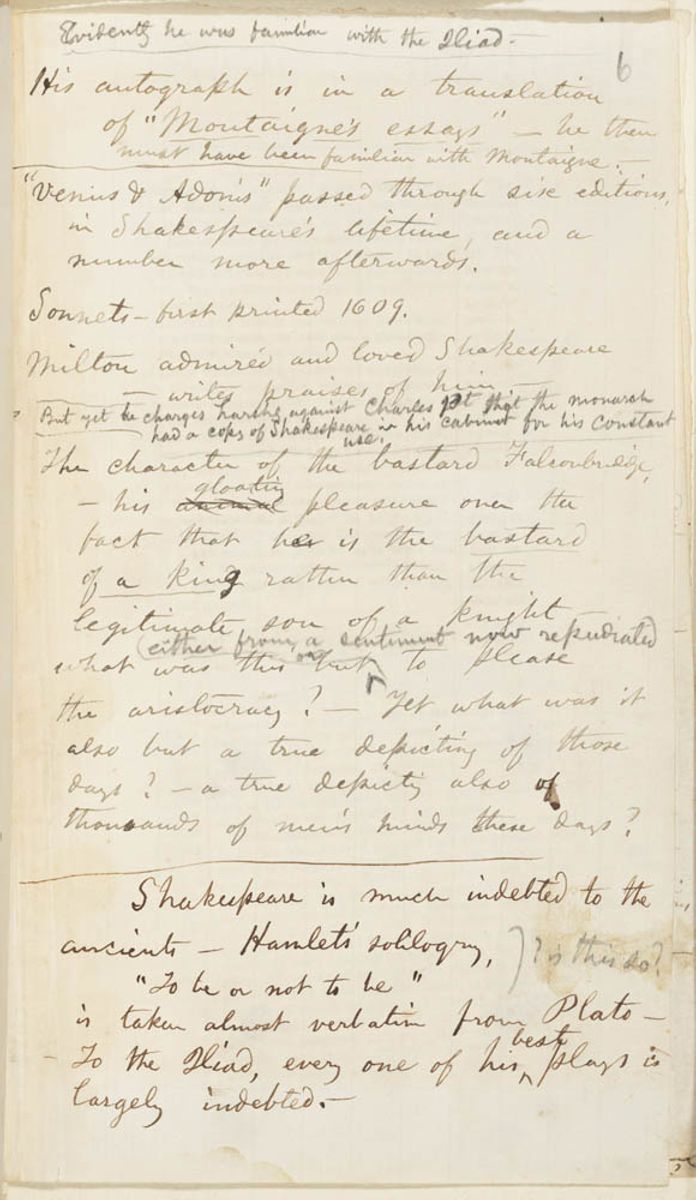 Evidently he was familiar with the Iliad.—
6
His autograph is in a translation
of "Montaigne's essays" — he then
must have been familiar with Montaigne.—
"Venus & Adonis" passed through six editions,
in Shakespeare's lifetime, and a
number more afterwards.
Sonnets — first printed 1609.
Milton admired and loved Shakespeare
— writes praises of him —
But yet he charges having against Charles 1st that the monarch
had a copy of Shakespeare in his cabinet for his constant
use.
The character of the bastard Falconbridge,
gloating
— his animal pleasure over the
fact that he is the bastard
of a king rather than the
legitimate son of a knight —
(either from a sentiment now repudiated
or
what was this but to please
the aristocracy? — Yet what was it
also but a true depicting of those
days? — a true depictig also of
thousands of men's minds these days?
Shakespeare is much indebted to the
ancients — Hamlet's sollogny,
"To be or not to be"
} ? is this so?
is taken almost verbatim from Plato —
best
— To the Iliad, every one of his ‸ plays is
largely indebted.—